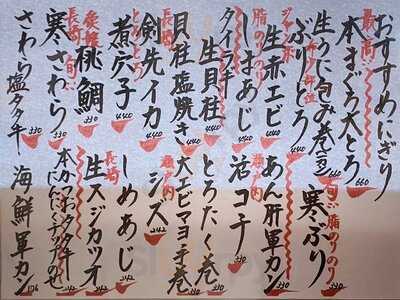 おすすめにぎり
最高 本まぐろ大とろ 660
生うに包み巻 660
ぶりとろ
ジャンボ 生赤エビ 440
脂のりのり しまあじ 440
タイラギ 生貝柱 440
貝柱塩焼き 440
長崎 剣先イカ 440
とろとろ 煮穴子 440
愛媛 桃鯛 330
寒さわら 330
さわら塩タタキ 330
旬 脂のりのり 寒ぶり 330
あん肝軍カン 330
活コチ 330
とろたく巻
大エビマヨ手巻
瀬戸内 シズ 242
しめあじ 242
長崎 生スジカツオ 242
本かつおタタキ にんにくチップのせ
海鮮軍カン 176